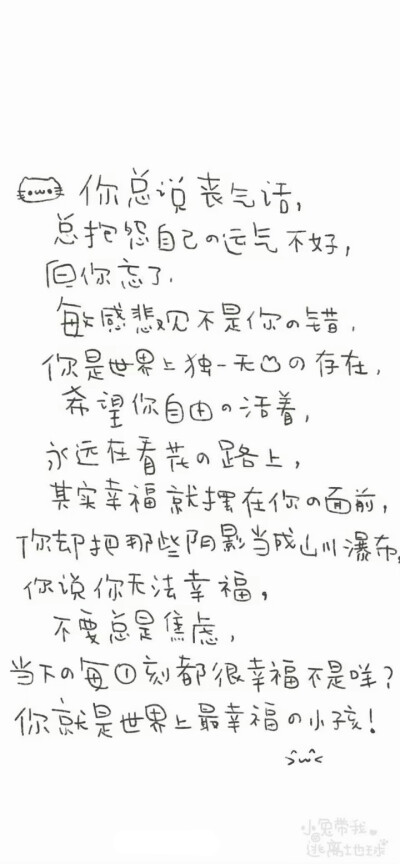 你总说丧气话，
总抱怨自己の运气不好，
但你忘了．
敏感悲观不是你の错，
你是世界上独一无二の存在，
希望你自由の活着，
永远在看花の路上，
其实幸福就摆在你の面前，
你却把那些阴影当成山川瀑布，
你说你无法幸福。
不要总是焦虑，
当下の每①刻都很幸福不是咩？
你就是世界上最幸福の小孩！
小兔帶我
逃离地球